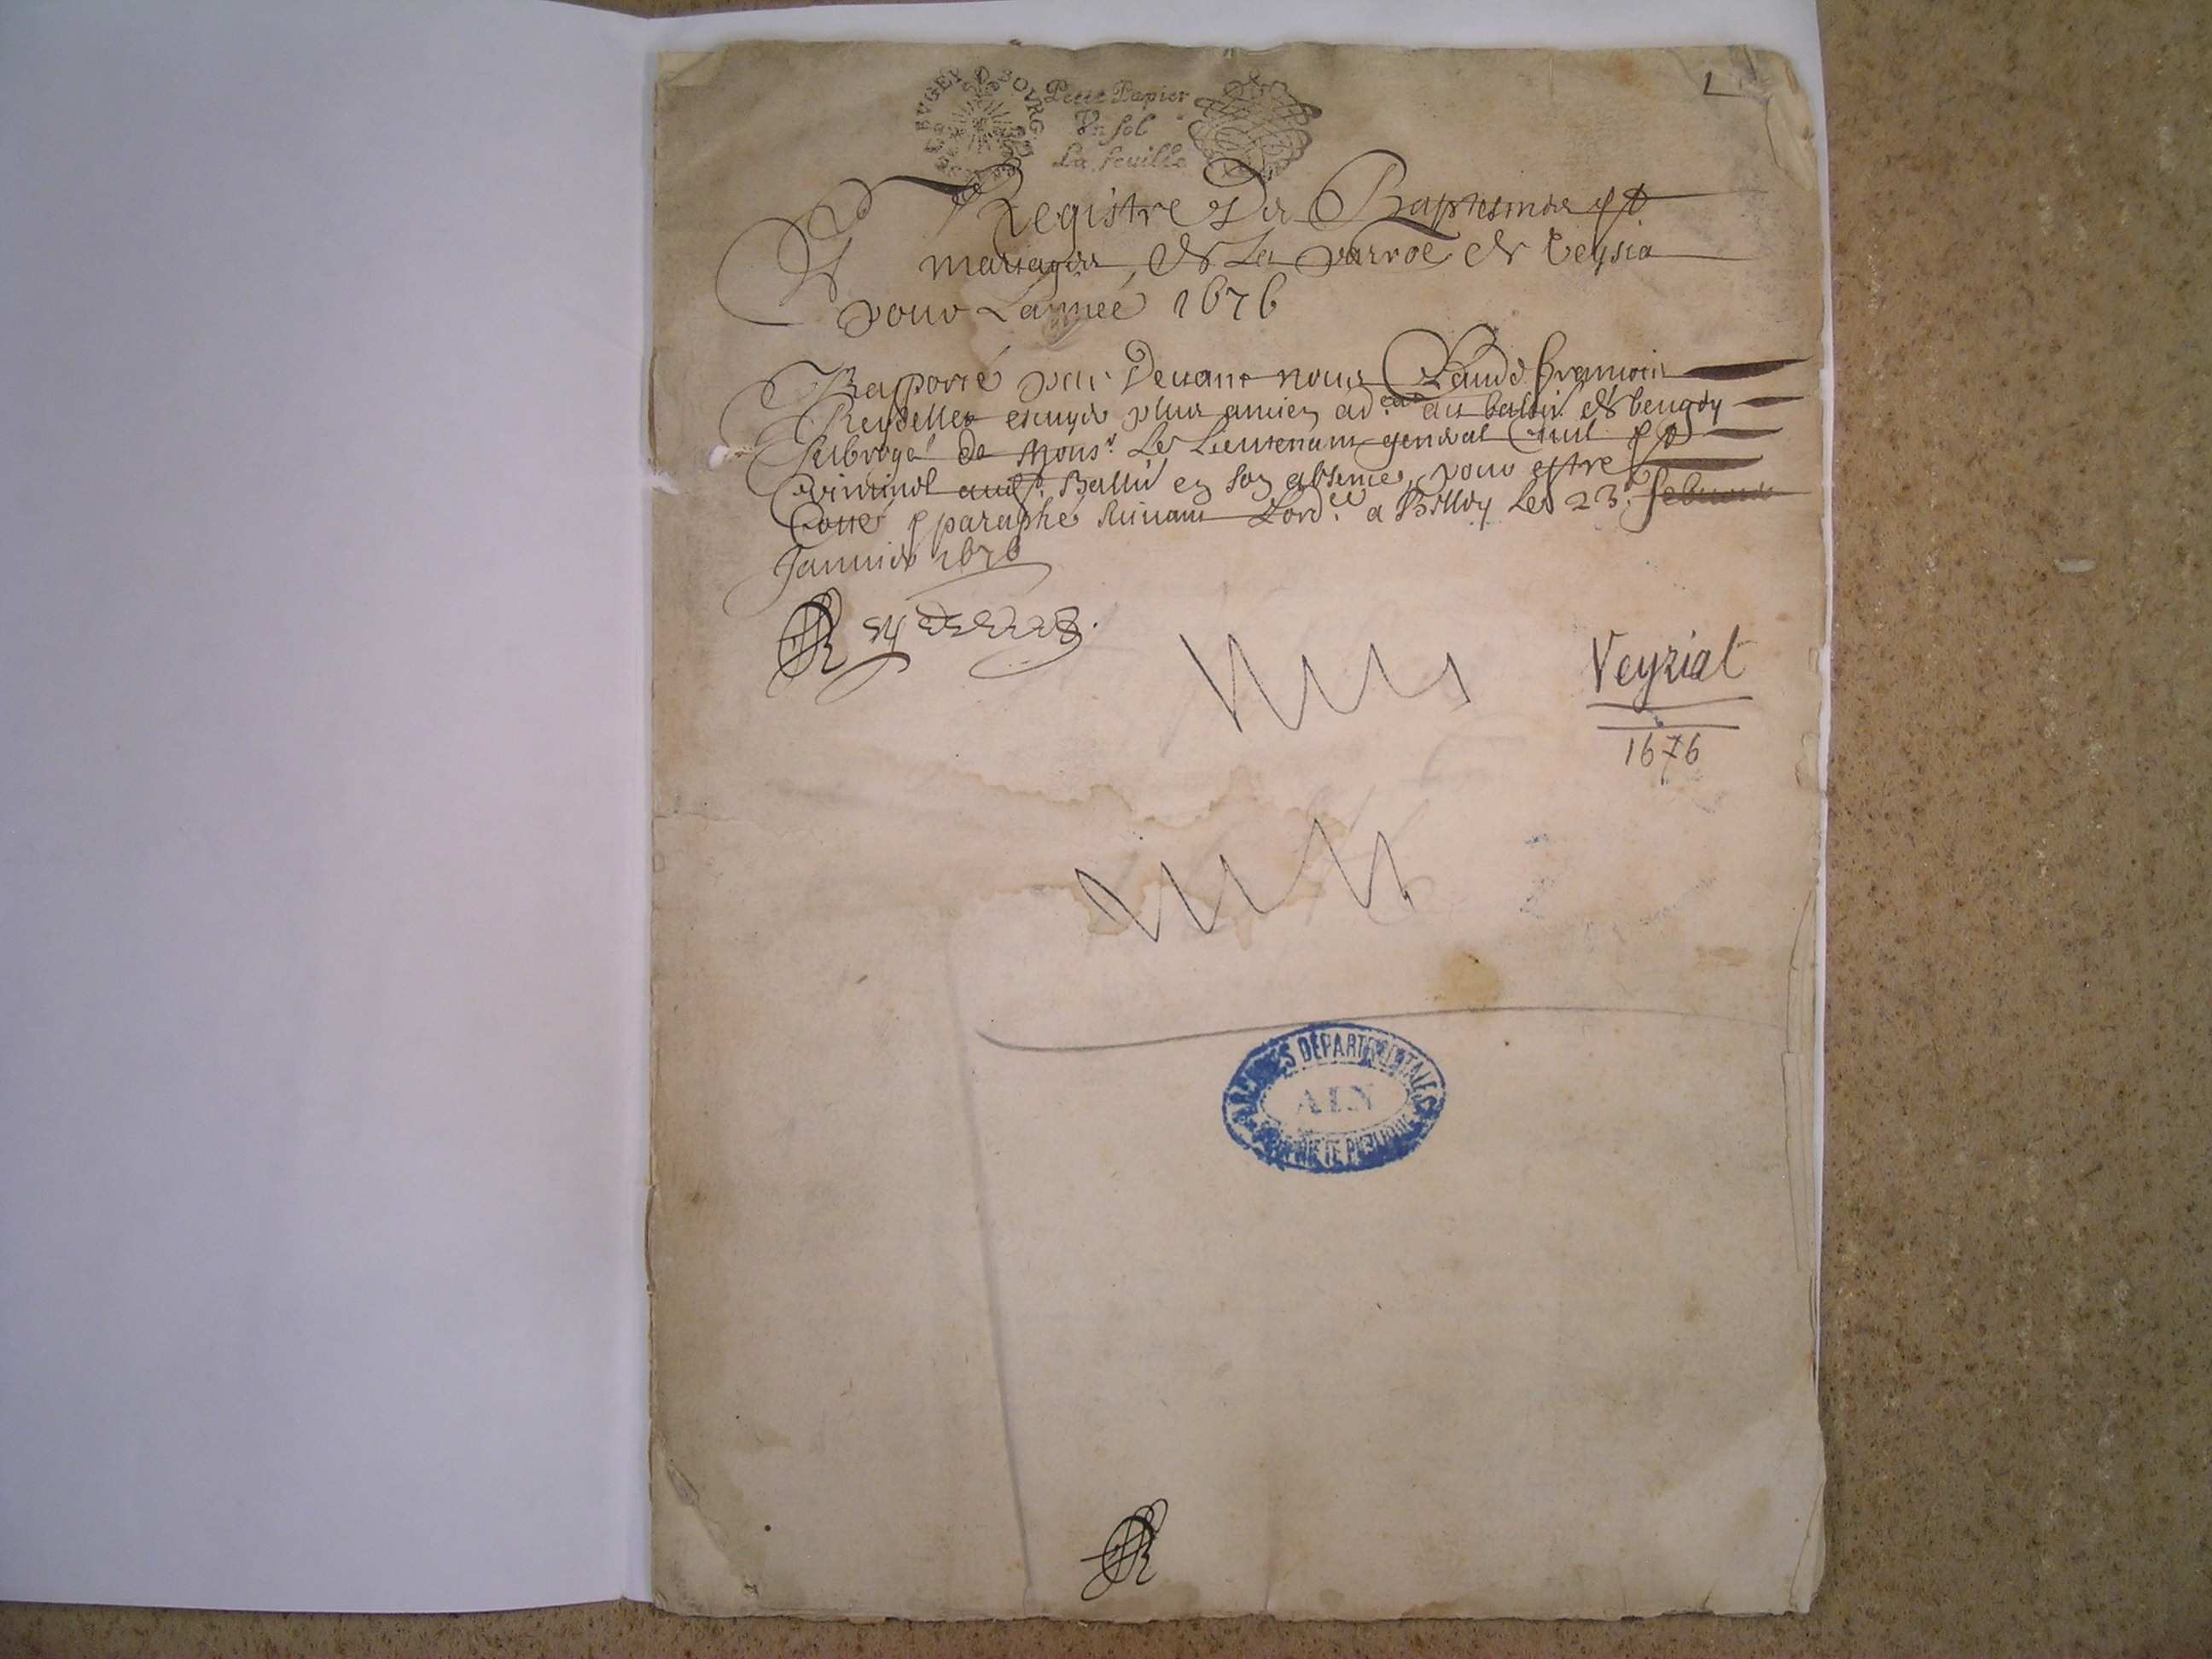 1
BVGEY BOVRG
Petit Papier
Vn sol
La feuille
Registre Des Baptesmes et
mariages, de La parroe de Veysia
pour Lannee 1676
Raporté par Deuant nous Claude francois
Reydellet escuyer plus ancien ad.cat au balliâ de beugey
subrogé de Mons.r Le Lieutenant general Ciuil et
Criminel aud.t Balliâ en son absence, pour estre
Cotté et paraphé suiuant Lord.ce a Belley Le 23.e
Januier 1676
Reydellet.
Veyziat
1676
ARCHIVES DÉPARTEMENTALES
AIN
PROPRIÉTÉ PUBLIQUE